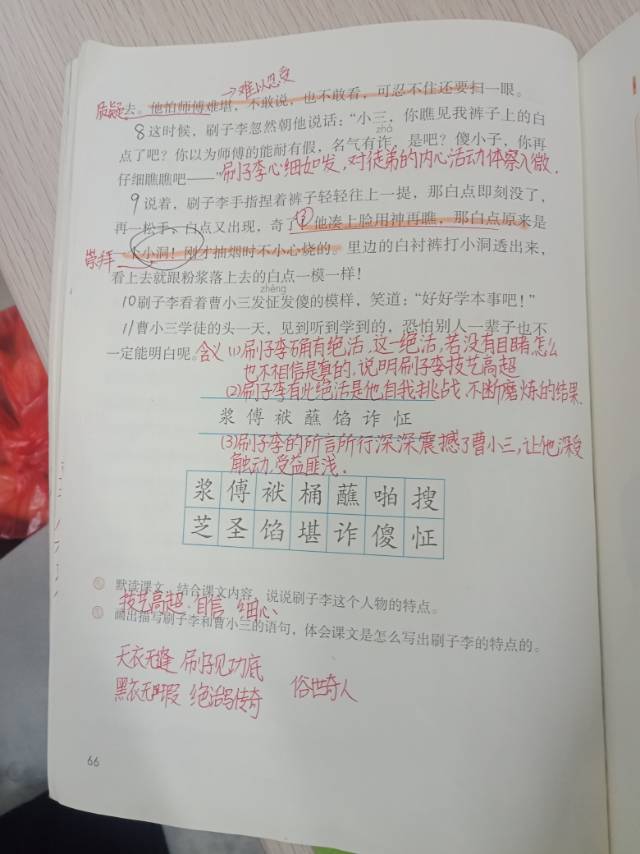 →难以忍受
质疑去。他怕师傅难堪，不敢说，也不敢看，可忍不住还要扫一眼。
8这时候，刷子李忽然朝他说话：“小三，你瞧见我裤子上的白
zhà
点了吧？你以为师傅的能耐有假，名气有诈，是吧？傻小子，你再
仔细瞧瞧吧——”刷子李心细如发，对徒弟的内心活动体察入微.
9说着，刷子李手指捏着裤子轻轻往上一提，那白点即刻没了，
再一松手，白点又出现，奇了！③他凑上脸用神再瞧，那白点原来是
崇拜一个小洞！刚才抽烟时不小心烧的。里边的白衬裤打小洞透出来，
看上去就跟粉浆落上去的白点一模一样！
zhèng
10刷子李看着曹小三发怔发傻的模样，笑道：“好好学本事吧！”
11曹小三学徒的头一天，见到听到学到的，恐怕别人一辈子也不
一定能明白呢。含义(1)刷子李确有绝活,这一绝活,若没有目睹怎么
也不相信是真的,说明刷子李技艺高超
(2)刷子李有此绝活是他自我挑战,不断磨炼的结果.
浆 傅 袱 蘸 馅 诈 怔
(3)刷子李的所言所行深深震撼了曹小三,让他深受
触动,受益匪浅.
浆 傅 袱 桶 蘸 啪 搜
芝 圣 馅 堪 诈 傻 怔
默读课文，结合课文内容，说说刷子李这个人物的特点。
技艺高超 自信 细心
画出描写刷子李和曹小三的语句，体会课文是怎么写出刷子李的特点的。
天衣无缝 刷子见功底
黑衣无瑕 绝活写传奇 俗世奇人
66